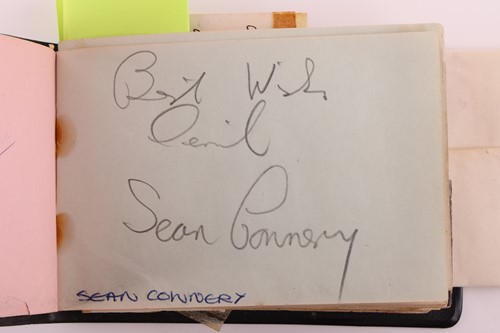 Best Wishes
Sean Connery
SEAN CONNERY